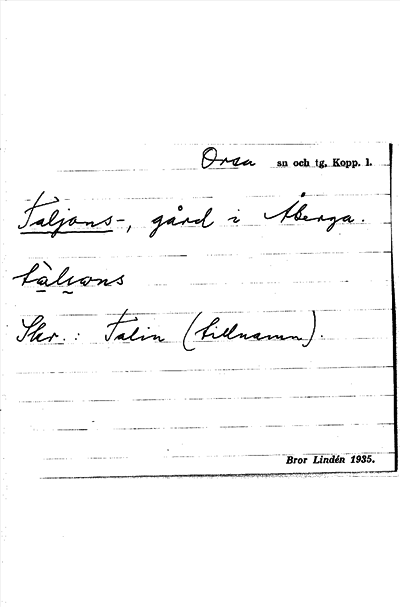 Orsa sn och tg, Kopp. l.
Taljons-, gård i Åberga.
Skr.: Talin (tillnamn).
Bror Lindén 1935.